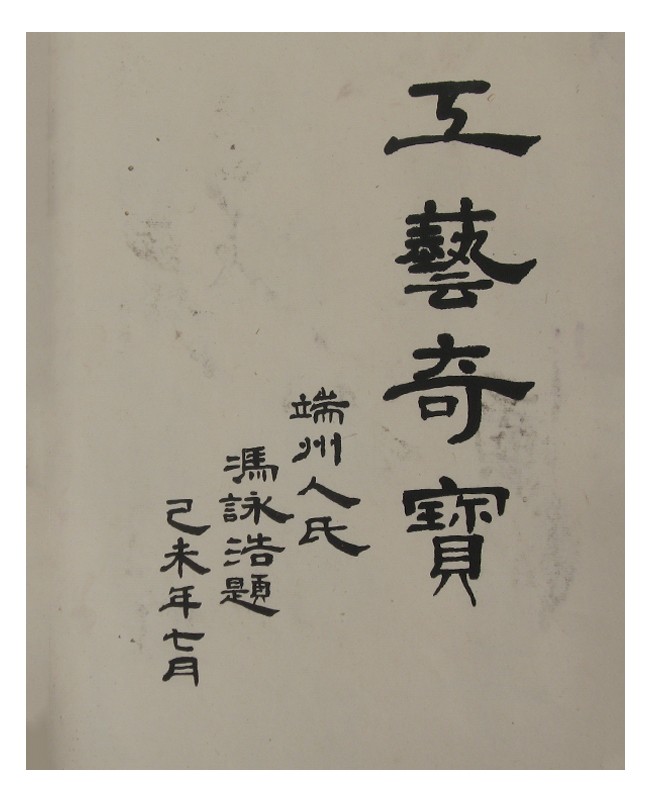 工藝奇寶
端州人氏
馮詠浩題
己未年七月